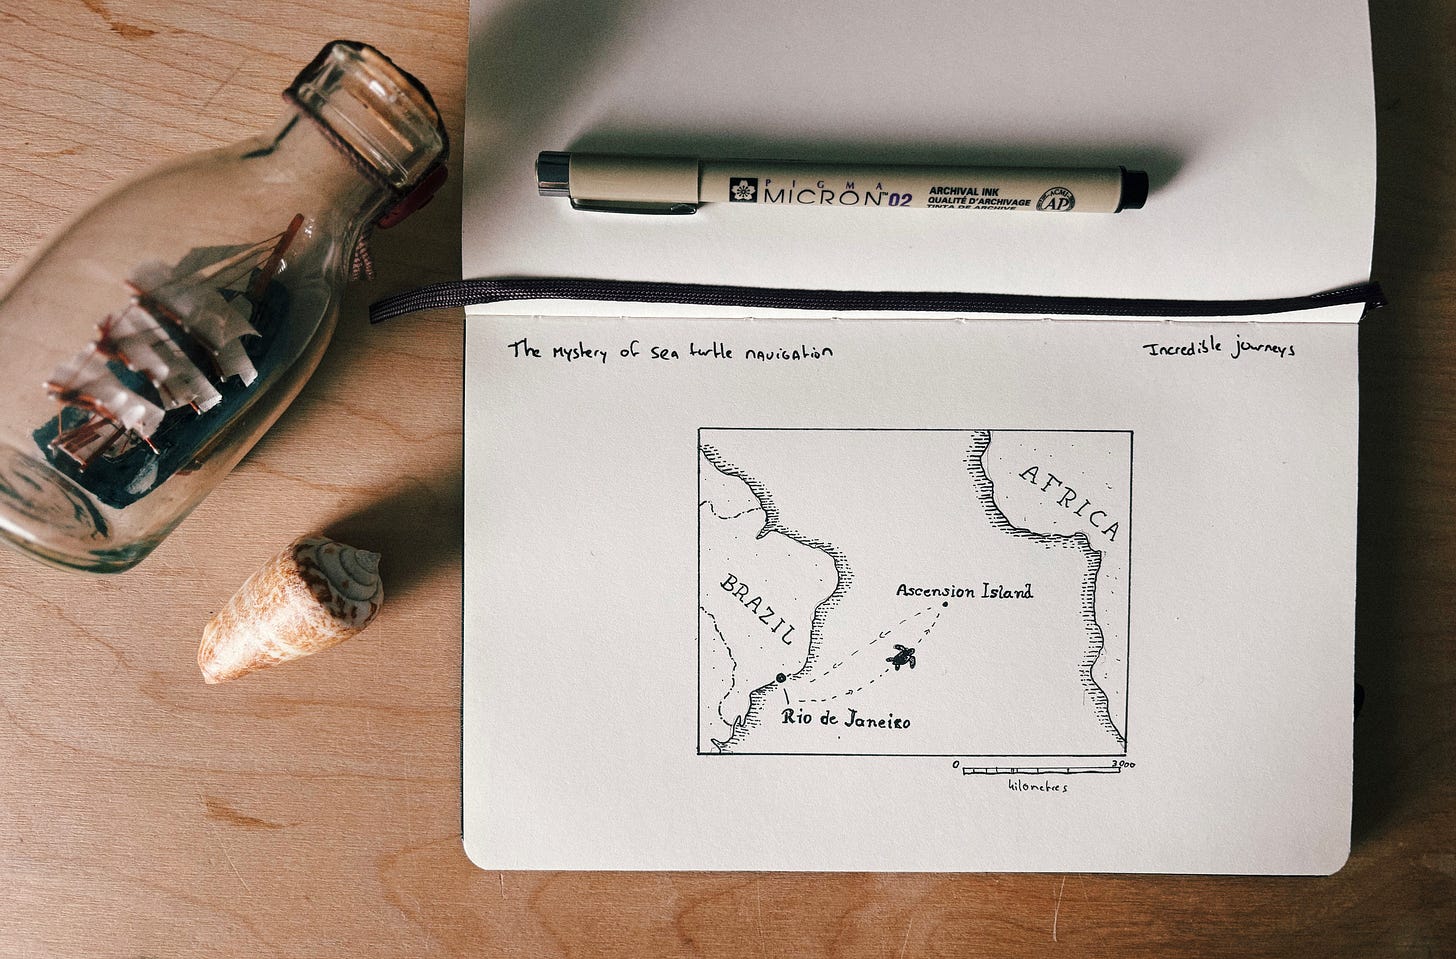 PIGMA
MICRON™02
ARCHIVAL INK
QUALITÉ D'ARCHIVAGE
TINTA DE ARCHIVE
ACMI
AP
The mystery of sea turtle navigation
Incredible journeys
AFRICA
BRAZIL
Ascension Island
Rio de Janeiro
0
kilometres